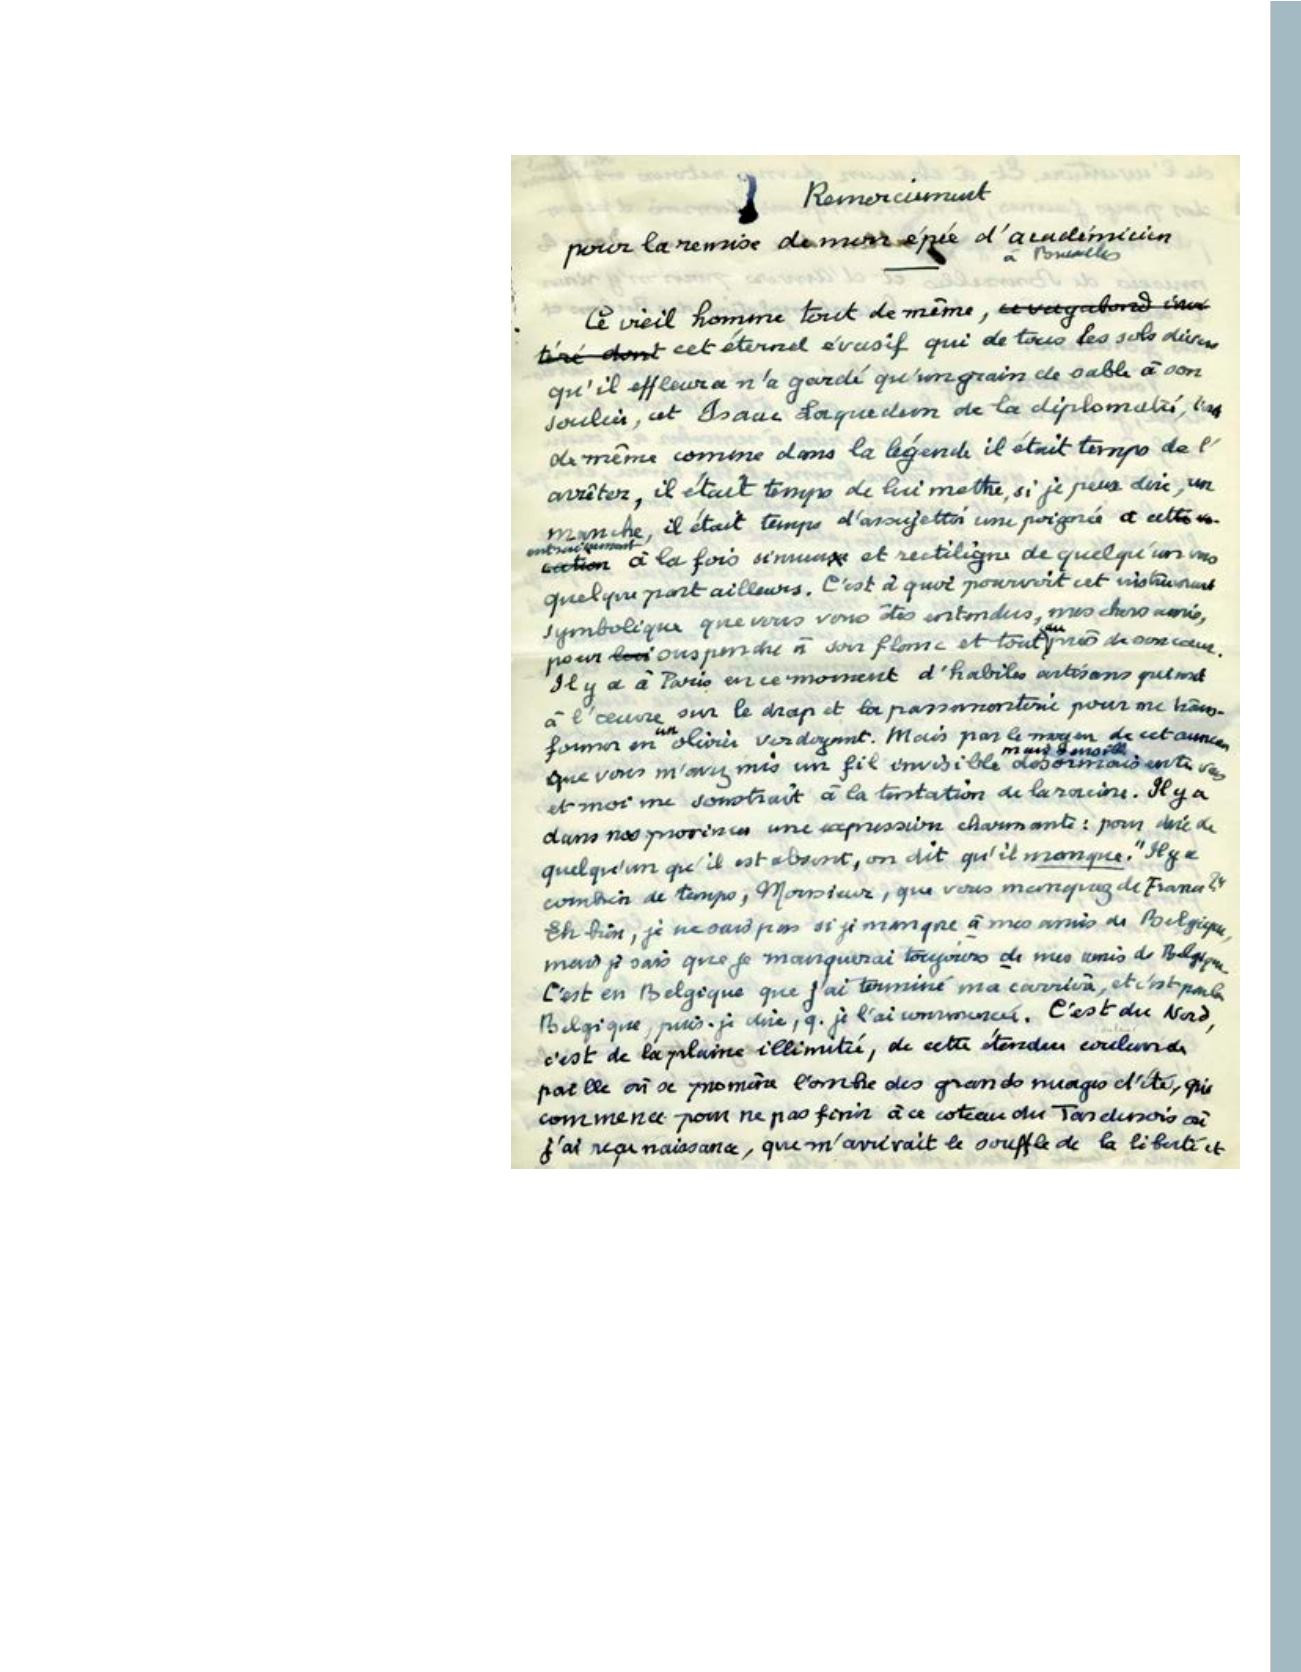 Remerciement
pour la remise de mon épée d'académicien
à Bruxelles
Ce vieil homme tout de même, ce vagabond invé
téré dont cet éternel évasif qui de tous les sols divers
qu'il effleura n'a gardé qu'un grain de sable à son
soulier, cet Isaac Laquedem de la diplomatie, tout
de même comme dans la légende il était temps de l'
arrêter, il était temps de lui mettre, si je peux dire, un
manche, il était temps d'assujettir une poignée à cette vo-
entraînement
cation à la fois sinueux et rectiligne de quelqu'un vers
quelque part ailleurs. C'est à quoi pourvoit cet instrument
symbolique que vous vous êtes entendus, mes chers amis,
au
pour lui suspendre à son flanc et tout près de son cœur.
Il y a à Paris en ce moment d'habiles artisans qui sont
à l'œuvre sur le drap et la passementerie pour me trans-
un
former en olivier verdoyant. Mais par le moyen de cet
mais sensible
que vous m'avez mis un fil invisible désormais entre vous
et moi me soustrait à la tentation de la racine. Il y a
dans nos provinces une expression charmante : pour dire de
quelqu'un qu'il est absent, on dit qu'il manque. "Il y a
combien de temps, Monsieur, que vous manquez de France ?"
Eh bien, je ne sais pas si je manque à mes amis de Belgique,
mais je sais que je manquerai toujours de mes amis de Belgique.
C'est en Belgique que j'ai terminé ma carrière, et c'est par la
Belgique, puis-je dire, q. je l'ai commencée. C'est du Nord,
c'est de la plaine illimitée, de cette étendue couleur de
paille où se promène l'ombre des grands nuages d'été, qui
commence pour ne pas finir à ce coteau du Tardenois où
j'ai reçu naissance, que m'arrivait le souffle de la liberté et